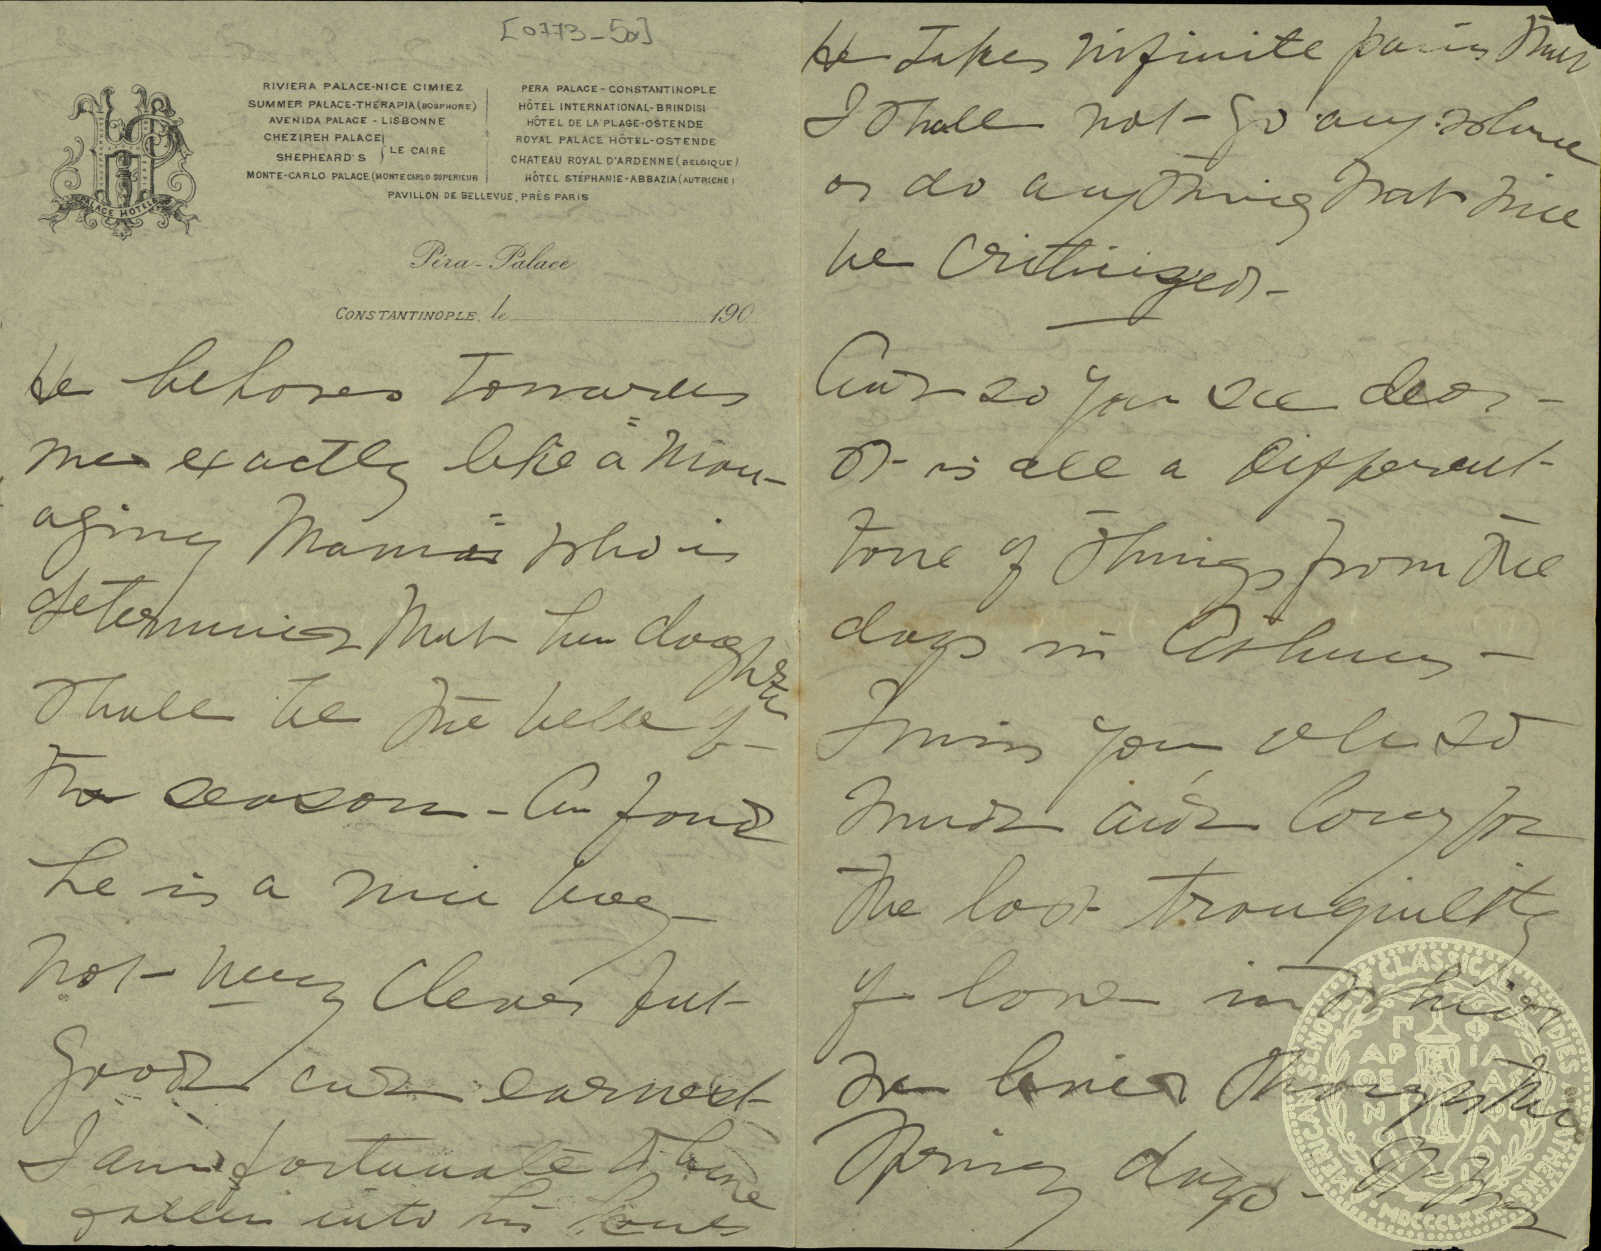 [0773-5α]
RIVIERA PALACE-NICE CIMIEZ
SUMMER PALACE-THERAPIA (BOSPHORE)
AVENIDA PALACE - LISBONNE
GHEZIREH PALACE
SHEPHEARD'S
LE CAIRE
MONTE-CARLO PALACE (MONTE CARLO SUPERIEUR
PERA PALACE - CONSTANTINOPLE
HÔTEL INTERNATIONAL-BRINDISI
HÔTEL DE LA PLAGE-OSTENDE
ROYAL PALACE HÔTEL-OSTENDE
CHATEAU ROYAL D'ARDENNE (BELGIQUE)
HÔTEL STÉPHANIE-ABBAZIA (AUTRICHE)
PAVILLON DE BELLEVUE, PRÈS PARIS
PALACE HOTELS
Péra-Palace
CONSTANTINOPLE, le 190
He behaves towards
me exactly like a "man-
aging Mama" who is
determined that her daughter
shall be the belle of
the season - Au fond
he is a nice boy
not very clever but
good and earnest
I am fortunate to have
fallen into his hands
He takes infinite pains that
I shall not go any where
or do anything that will
be criticised -
And so you see dear -
it is all a different
tone of things from the
days in Athens -
I miss you oh so
much and long for
the lost tranquility
of love in which
we lived through the
Spring days -
AMERICAN SCHOOL OF CLASSICAL STUDIES AT ATHENS
MDCCCLXXXI